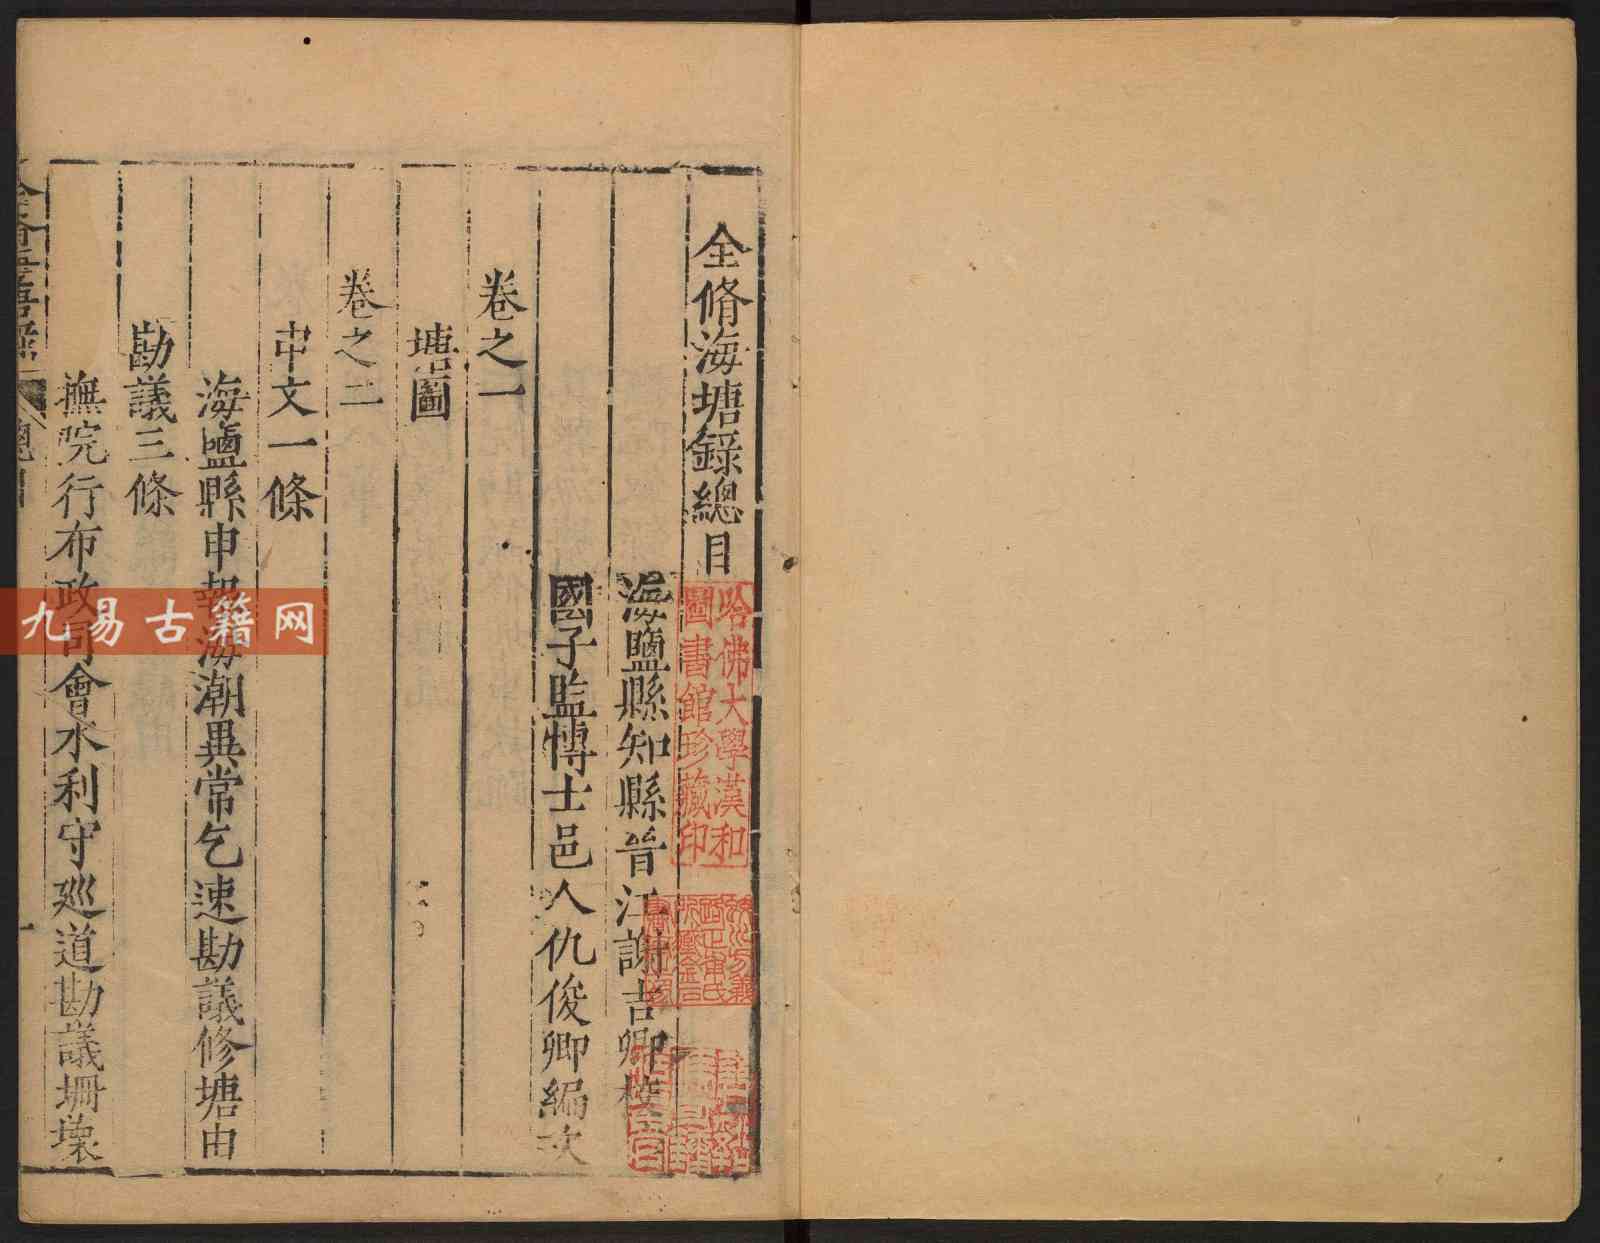 全脩海塘錄總目
海鹽縣知縣晉江謝吉卿校
國子監博士邑人仇俊卿編次
卷之一
塘圖
卷之二
申文一條
海鹽縣申報海潮異常乞速勘議修塘由
勘議三條
撫院行布政司會水利守巡道勘議坍壞
哈佛大學漢和
圖書館珍藏印
九易古籍网